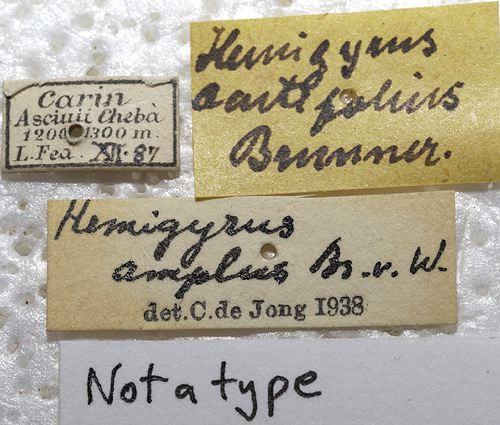 Carin
Asciuii Chebà
1200-1300 m.
L. Fea. XII-87
Hemigyrus
acutifolius
Brunner.
Hemigyrus
amplus Br. v. W.
det. C. de Jong 1938
Not a type